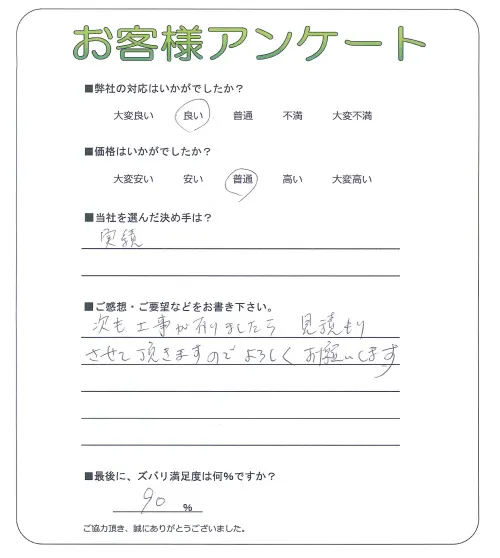 お客様アンケート
■弊社の対応はいかがでしたか？
大変良い 良い 普通 不満 大変不満
■価格はいかがでしたか？
大変安い 安い 普通 高い 大変高い
■当社を選んだ決め手は？
実績
■ご感想・ご要望などをお書き下さい。
次も工事が有りましたら 見積もり
させて頂きますのでよろしくお願いします
■最後に、ズバリ満足度は何％ですか？
90 ％
ご協力頂き、誠にありがとうございました。